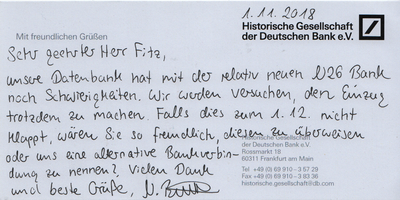 1.11.2018
Historische Gesellschaft
der Deutschen Bank e.V.
Mit freundlichen Grüßen
Sehr geehrter Herr Fitz,
unsere Datenbank hat mit der relativ neuen N26 Bank
noch Schwierigkeiten. Wir werden versuchen, den Einzug
trotzdem zu machen. Falls dies zum 1.12. nicht
klappt, wären Sie so freundlich, diesen zu überweisen
oder uns eine alternative Bankverbin-
dung zu nennen? Vielen Dank
und beste Grüße,
Historische Gesellschaft
der Deutschen Bank e.V.
Rossmarkt 18
60311 Frankfurt am Main
Tel +49 (0) 69 910 - 3 57 29
Fax +49 (0) 69 910 - 3 83 36
historische.gesellschaft@db.com